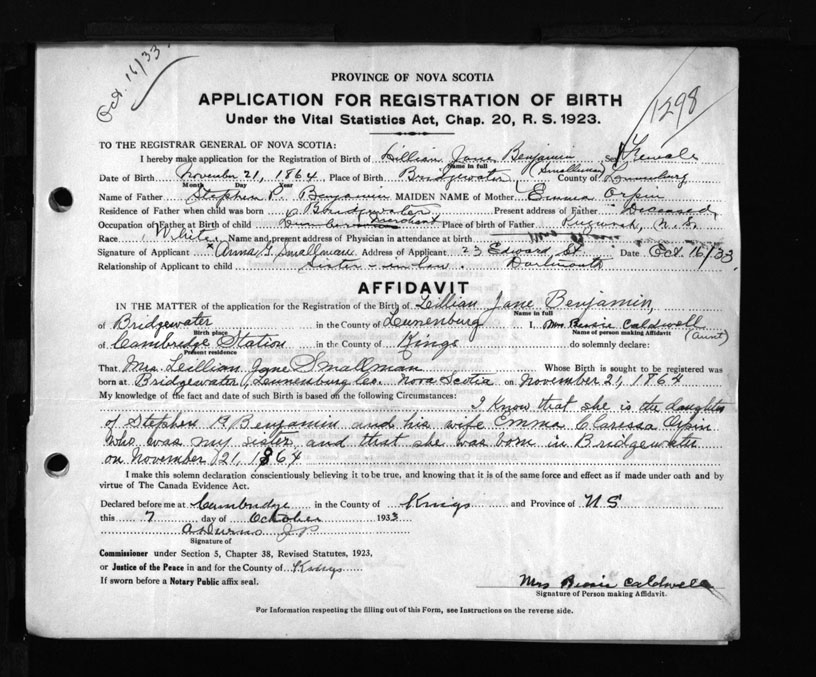 Oct. 16/33
PROVINCE OF NOVA SCOTIA
1298
APPLICATION FOR REGISTRATION OF BIRTH
Under the Vital Statistics Act, Chap. 20, R. S. 1923.
TO THE REGISTRAR GENERAL OF NOVA SCOTIA:
I hereby make application for the Registration of Birth of Lillian Jane Benjamin Sex Female
Name in full (Smallman)
Date of Birth November 21, 1864 Place of Birth Bridgewater County of Lunenburg
Month Day Year
Name of Father Stephen P. Benjamin MAIDEN NAME of Mother Emma Orpin
Residence of Father when child was born Bridgewater Present address of Father Deceased
Occupation of Father at Birth of child Lumber merchant Place of birth of Father N.S.
Race White Name and present address of Physician in attendance at birth
Signature of Applicant Anna G. Smallman Address of Applicant 23 Edward St. Date Oct. 16/33
Relationship of Applicant to child Sister-in-law. Dartmouth
AFFIDAVIT
IN THE MATTER of the application for the Registration of the Birth of Lillian Jane Benjamin,
Name in full
of Bridgewater in the County of Lunenburg I, Mrs Bessie Caldwell
Birth place Name of person making Affidavit (Aunt)
of Cambridge Station in the County of Kings do solemnly declare:
Present residence
That Mrs. Lillian Jane Smallman Whose Birth is sought to be registered was
born at Bridgewater, Lunenburg Co. Nova Scotia on November 21, 1864
My knowledge of the fact and date of such Birth is based on the following Circumstances:
I know that she is the daughter
of Stephen P Benjamin and his wife Emma Claressa Orpin
who was my sister and that she was born in Bridgewater
on November 21, 1864
I make this solemn declaration conscientiously believing it to be true, and knowing that it is of the same force and effect as if made under oath and by
virtue of The Canada Evidence Act.
Declared before me at Cambridge in the County of Kings and Province of NS
this 7 day of October 1933
J P
Signature of
Commissioner under Section 5, Chapter 38, Revised Statutes, 1923,
or Justice of the Peace in and for the County of Kings
If sworn before a Notary Public affix seal.
Mrs Bessie Caldwell
Signature of Person making Affidavit.
For Information respecting the filling out of this Form, see Instructions on the reverse side.